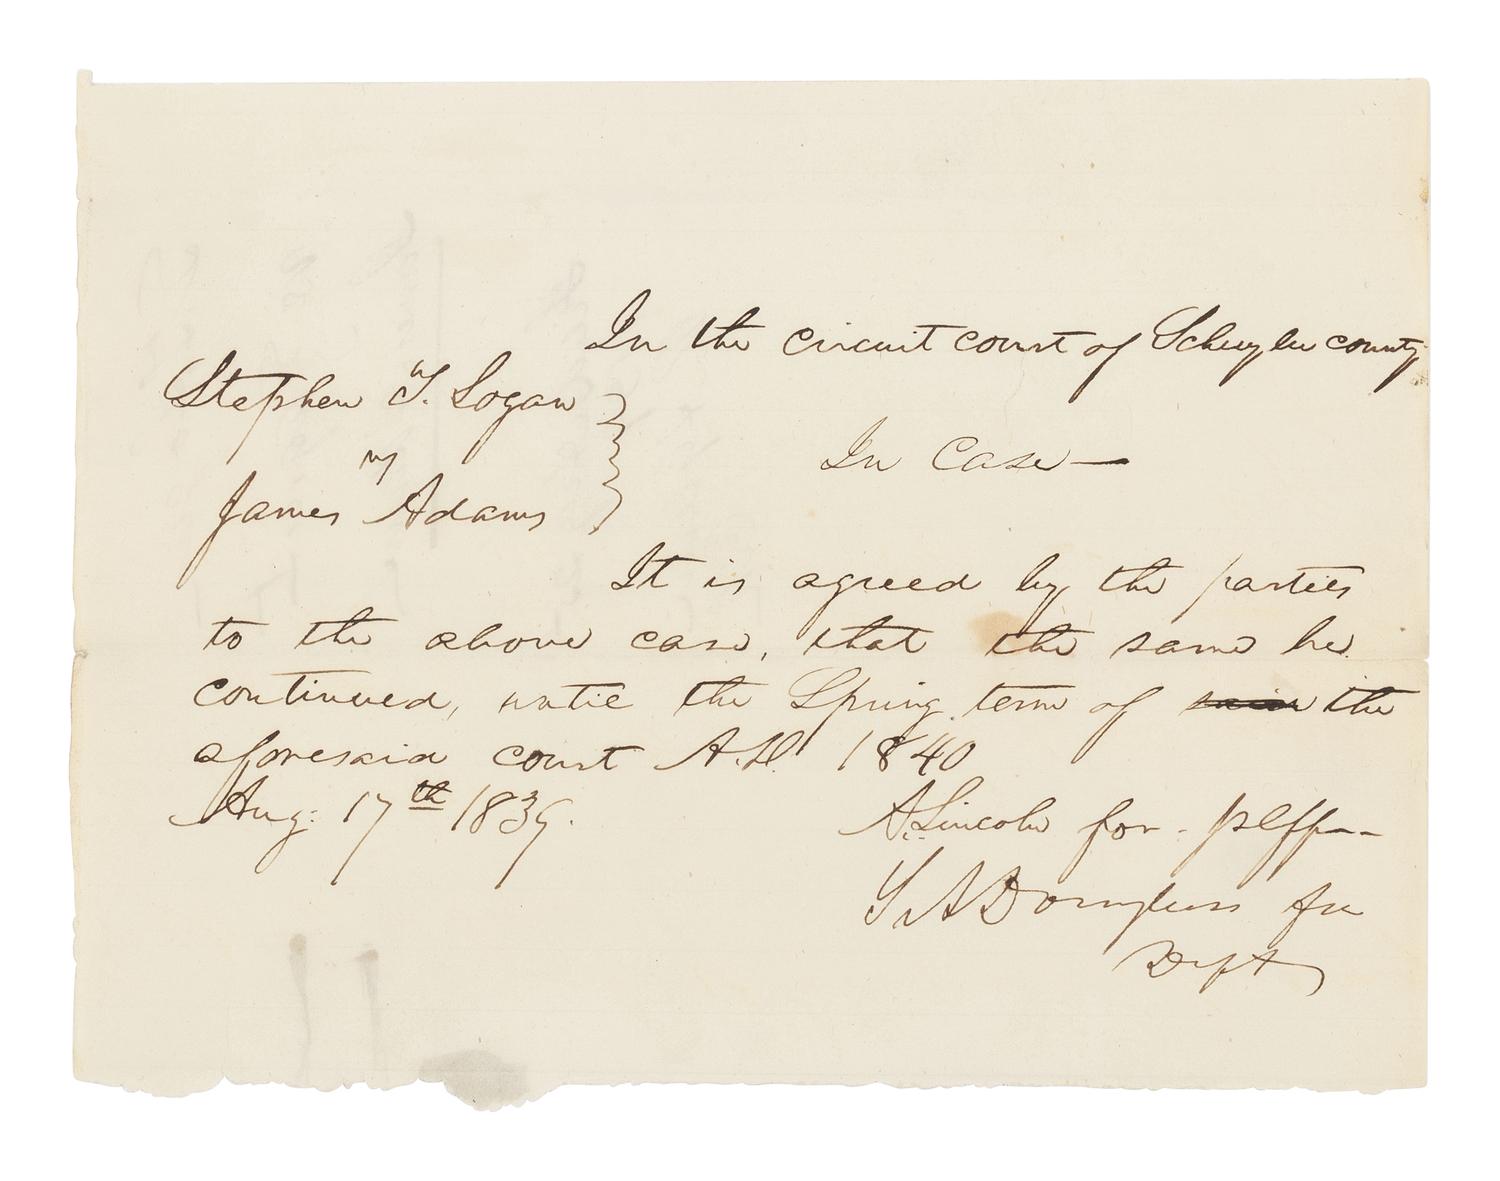 In the circuit court of Schuyler county
Stephen T. Logan
vs
James Adams
In Case—
It is agreed by the parties
to the above case, that the same be
continued, until the Spring term of said the
aforesaid court A.D. 1840
Aug: 17th 1839.
A. Lincoln for plff—
S A Douglass for
Deft